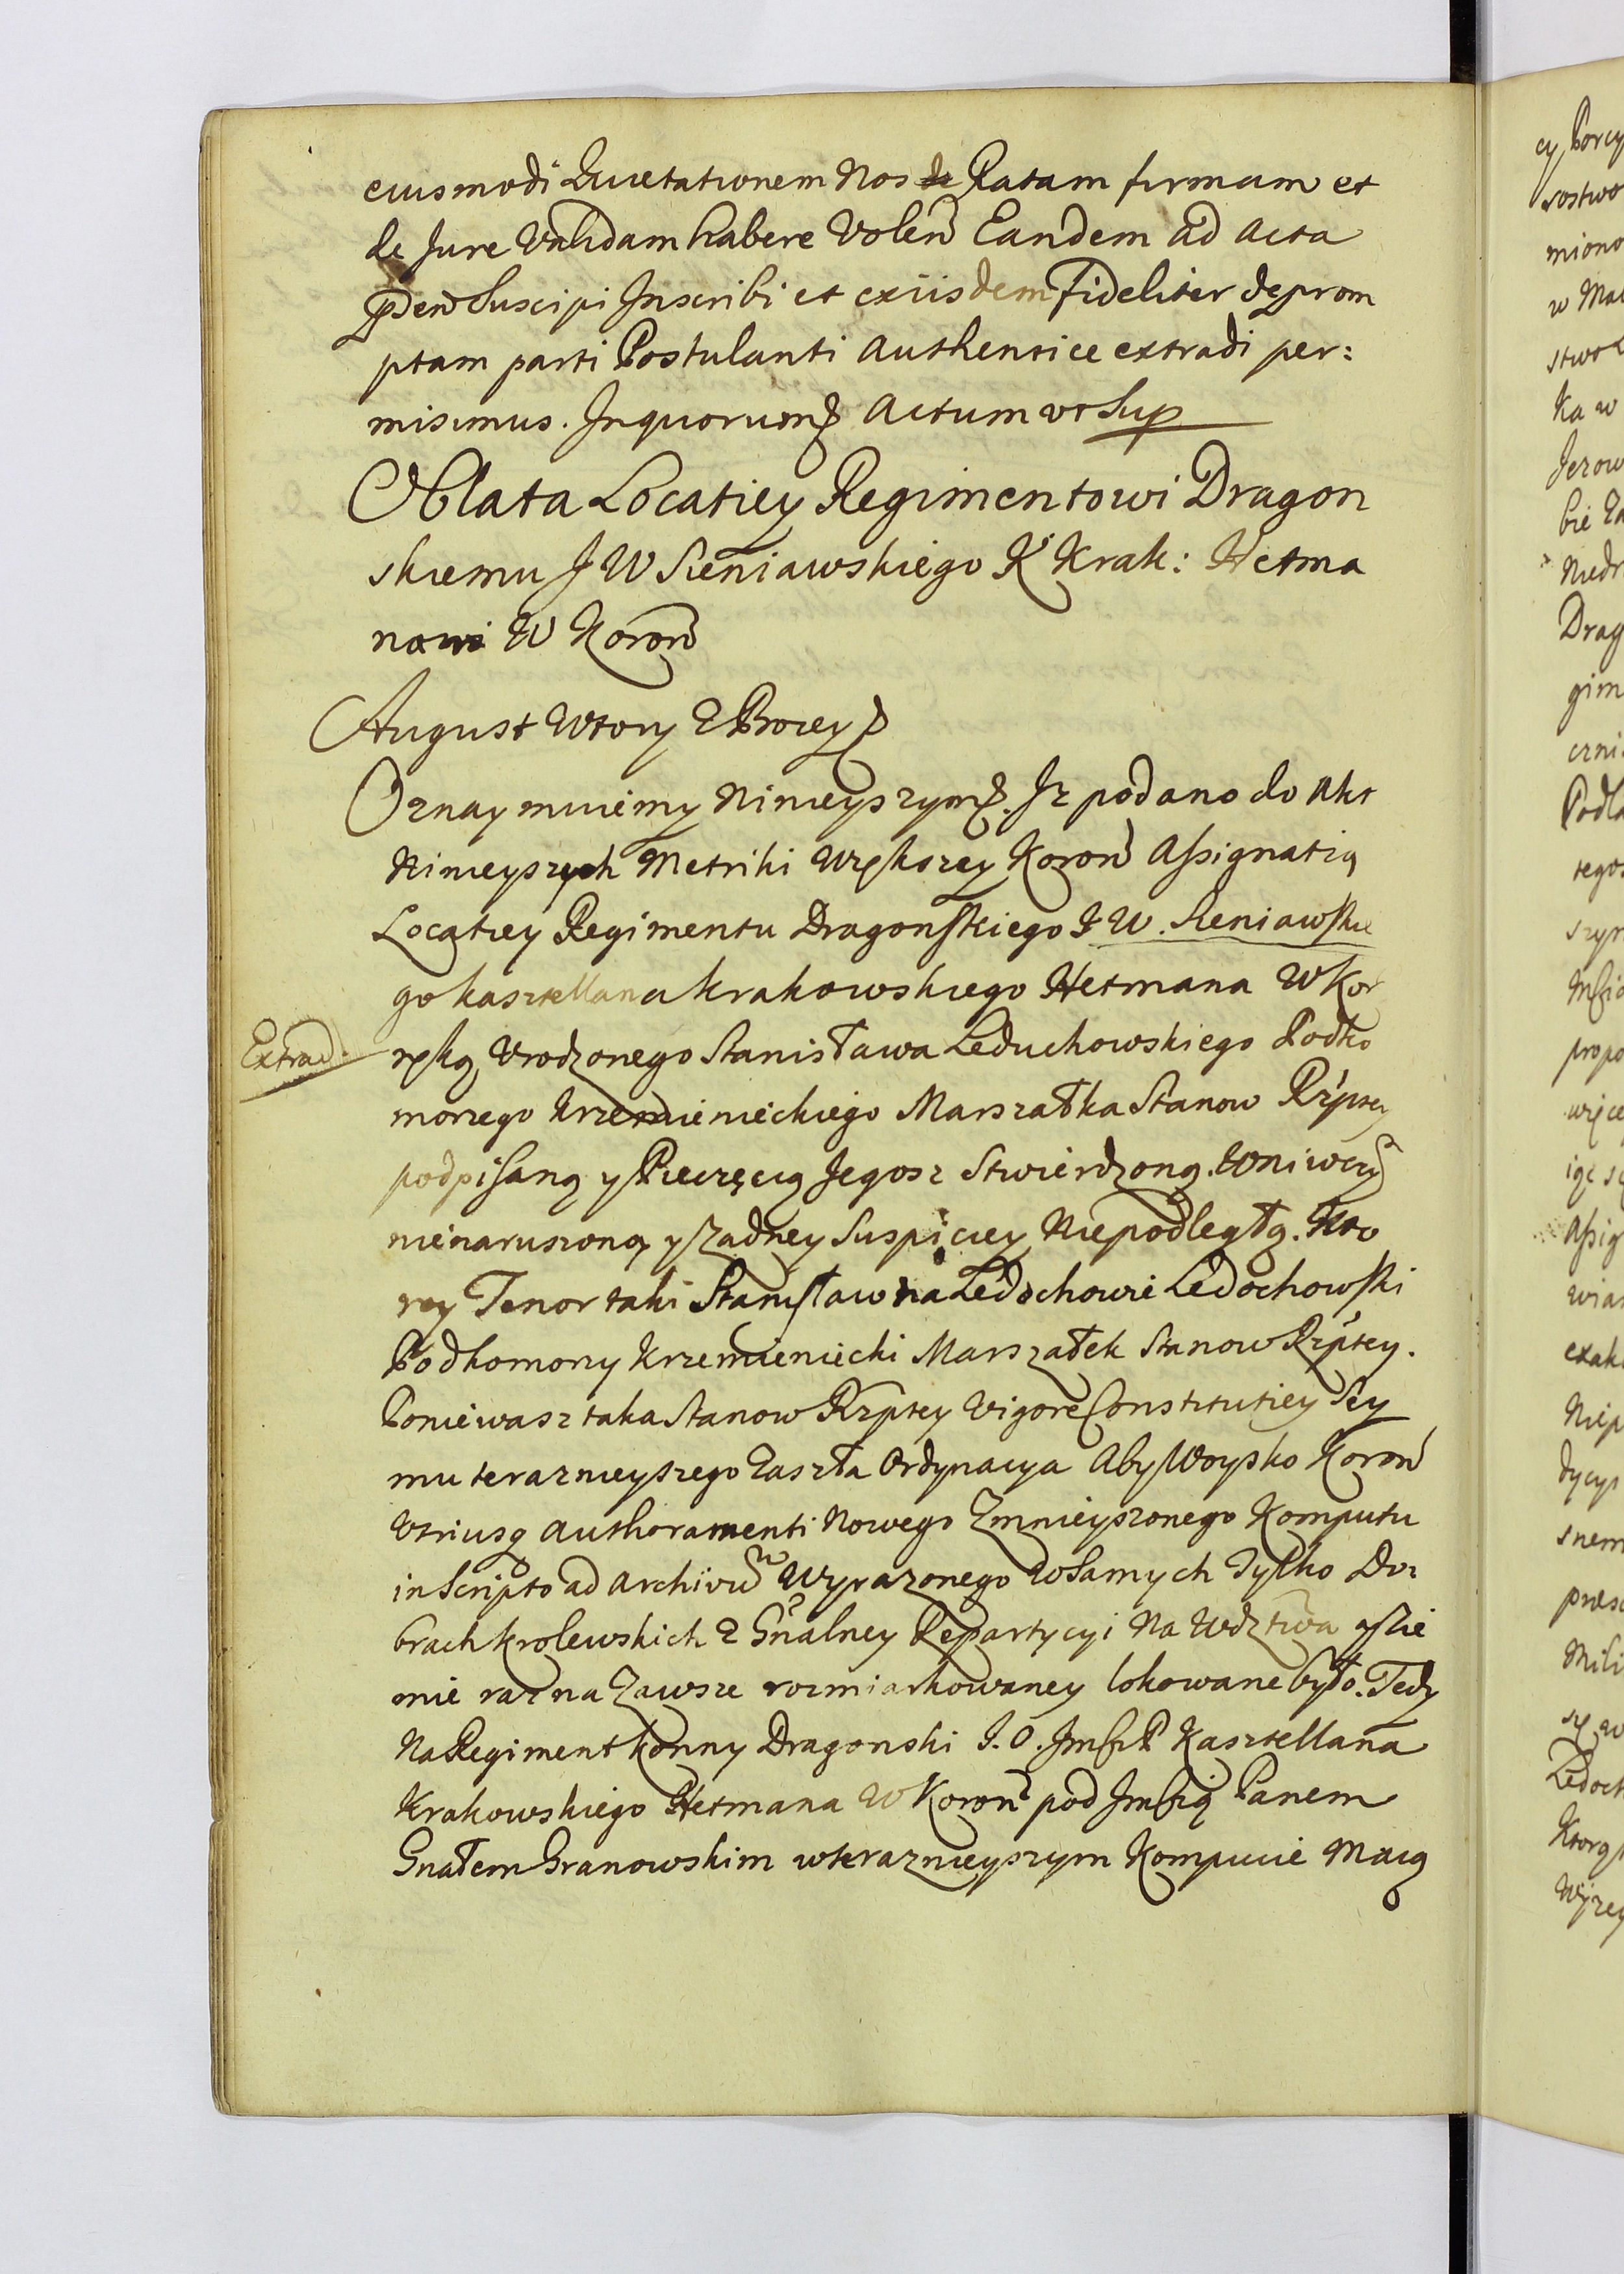 eiusmodi Quietationem Nos de Ratam firmam et
de Jure Validam habere Volen Eandem ad Acta
Pden Suscipi Inscribi et exiisdem Fideliter deprom
ptam parti Postulanti Authentice extradi per:
misimus. In quorum Actum vt Sup
Oblata Locatiey Regimentowi Dragon
skiemu J W Sieniawskiego K Krak: Hetma
nowi W Koron
August Wtory Z Bozey
Oznaymuiemy Ninieyszym. Jz podano do Akt
Ninieyszych Metriki Większey Koron Assignatią
Locatiey Regimentu Dragonskiego J W. Sieniawskie
go kasztellana krakowskiego Hetmana W Kor
Extrad.
ręką Vrodzonego Stanisława Leduchowskiego Podko
morzego krzemienieckiego Marszałka Stanow Rzptey
podpisaną y Pieczęcią Jegosz Stwierdzoną. wniwczym
nienaruszoną y Zadney Suspiciey Niepodległą. Kto
rey Tenor taki Stanisław na Ledochowie Ledochowski
Podkomorzy krzemieniecki Marszałek Stanow Rzptey.
Poniewasz taka Stanow Rzptey Vigore Constitutiey Sey
mu teraznieyszego Zaszła Ordynacya Aby Woysko Koron
Vtriusq Authoramenti Nowego Zmnieyszonego Komputu
in Scripto ad Archivum Wyrazonego W Samych Tylko Do:
brach krolewskich Z Gnalney Repartycyi Na Wdztwa y Zie
mie raz na Zawsze rozmiarkowaney lokowane było. Tedy
Na Regiment konny Dragonski J. O. Jmści P Kasztellana
Krakowskiego Hetmana W Koron pod Jmścią Panem
Gnałem Granowskim wteraznieyszym Kompucie Maią